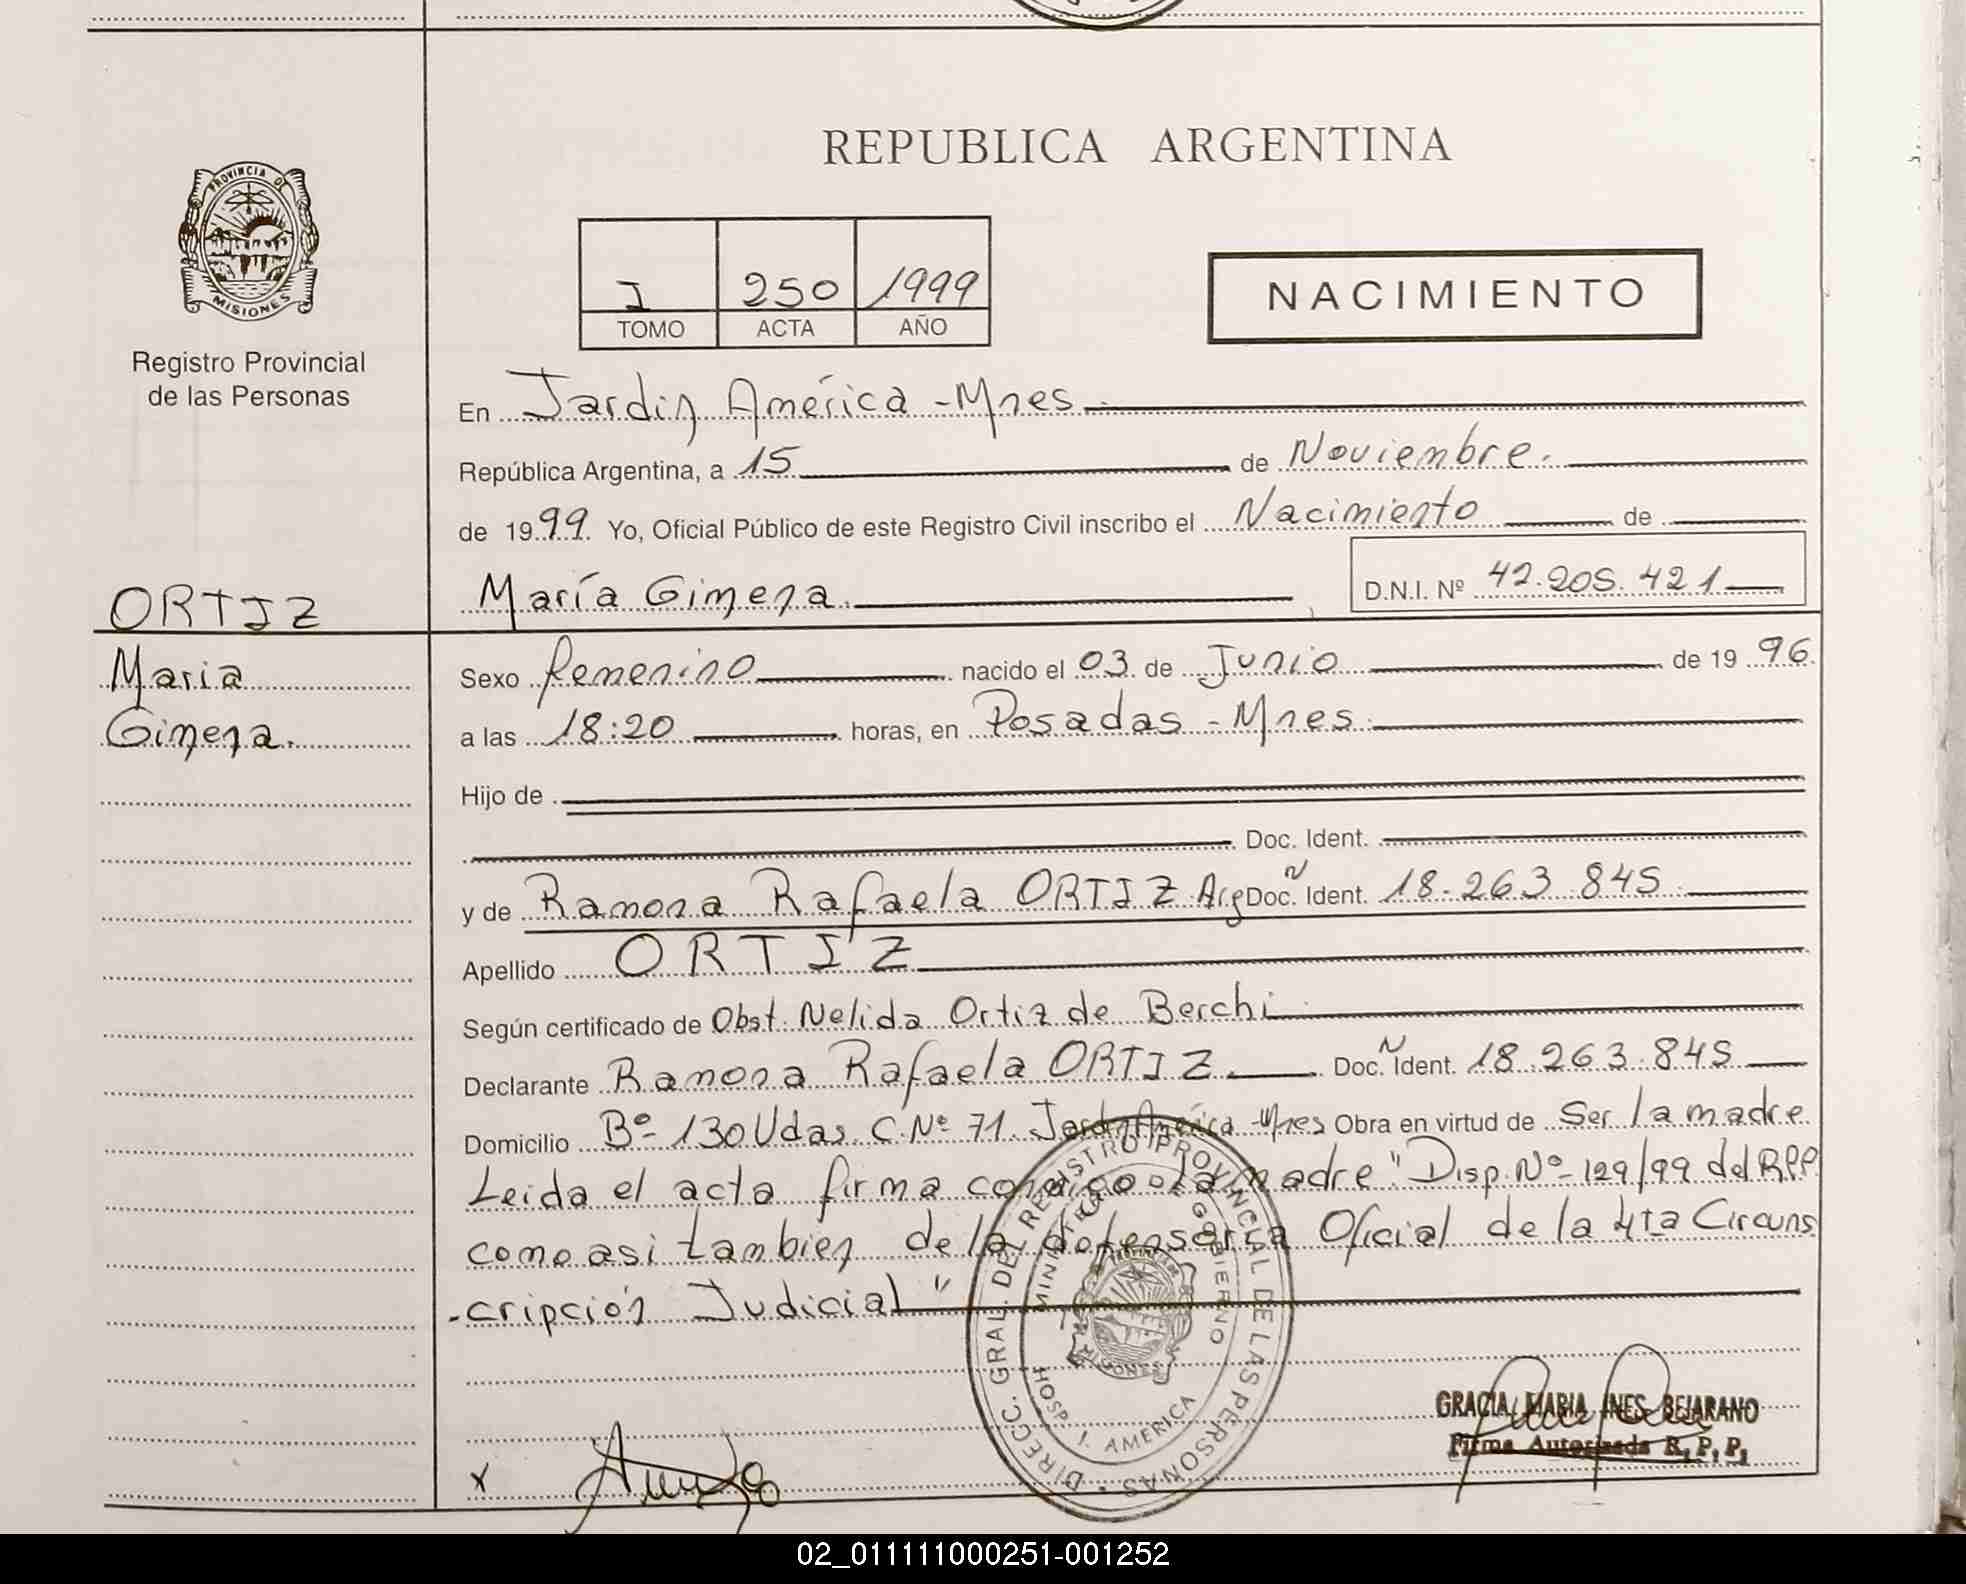 REPUBLICA ARGENTINA
PROVINCIA DE
MISIONES
Registro Provincial
de las Personas
I 250 1999
TOMO ACTA AÑO
NACIMIENTO
En Jardín América - Mnes.
República Argentina, a 15 de Noviembre.
de 1999. Yo, Oficial Público de este Registro Civil inscribo el Nacimiento de
María Gimena. D.N.I. Nº 42.205.421
ORTIZ
Maria
Gimena.
Sexo femenino nacido el 03 de Junio de 1996.
a las 18:20 horas, en Posadas - Mnes.
Hijo de
Doc. Ident.
y de Ramona Rafaela ORTIZ Arg Doc. N Ident. 18.263.845
Apellido ORTIZ
Según certificado de Obst. Nelida Ortiz de Berchi
Declarante Ramona Rafaela ORTIZ Doc. N Ident. 18.263.845
Domicilio Bº- 130 Vdas C.Nº 71. Jardín América - Mnes Obra en virtud de Ser la madre
Leida el acta firma conmigo la madre "Disp. Nº- 129/99 del R.P.P
como asi tambien de la defensoría Oficial de la 4ta Circuns
-cripción Judicial"
DIRECC. GRAL. DEL REGISTRO PROVINCIAL DE LAS PERSONAS
GOBIERNO
HOSP. J. AMERICA
MISIONES
x
GRACIA MARIA INES BEJARANO
Firma Autorizada R.P.P.
02_011111000251-001252